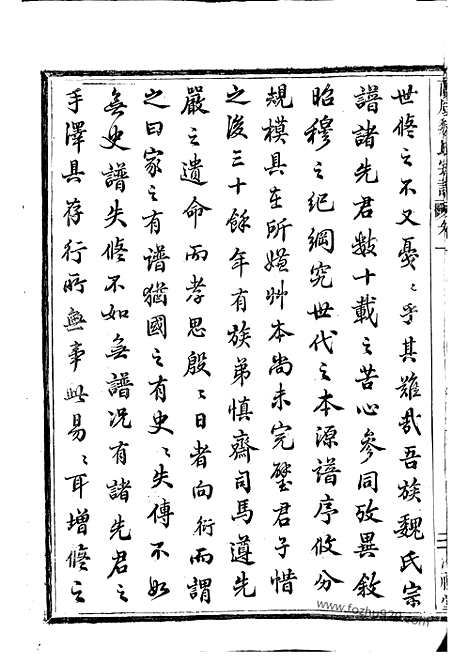 世修之不又憂憂乎其難哉吾族魏氏宗
譜諸先君數十載之苦心參同攷異敘
昭穆之紀綱究世代之本源譜序攸分
規模具在所嫌艸本尚未完璧君子惜
之後三十餘年有族弟慎齋司馬遵先
嚴之遺命而孝思殷殷日者向衍而謂
之曰家之有譜猶國之有史史失傳不如
無史譜失修不如無譜况有諸先君之
手澤具存行所無事此易易耳增修之
www.fozhu920.com